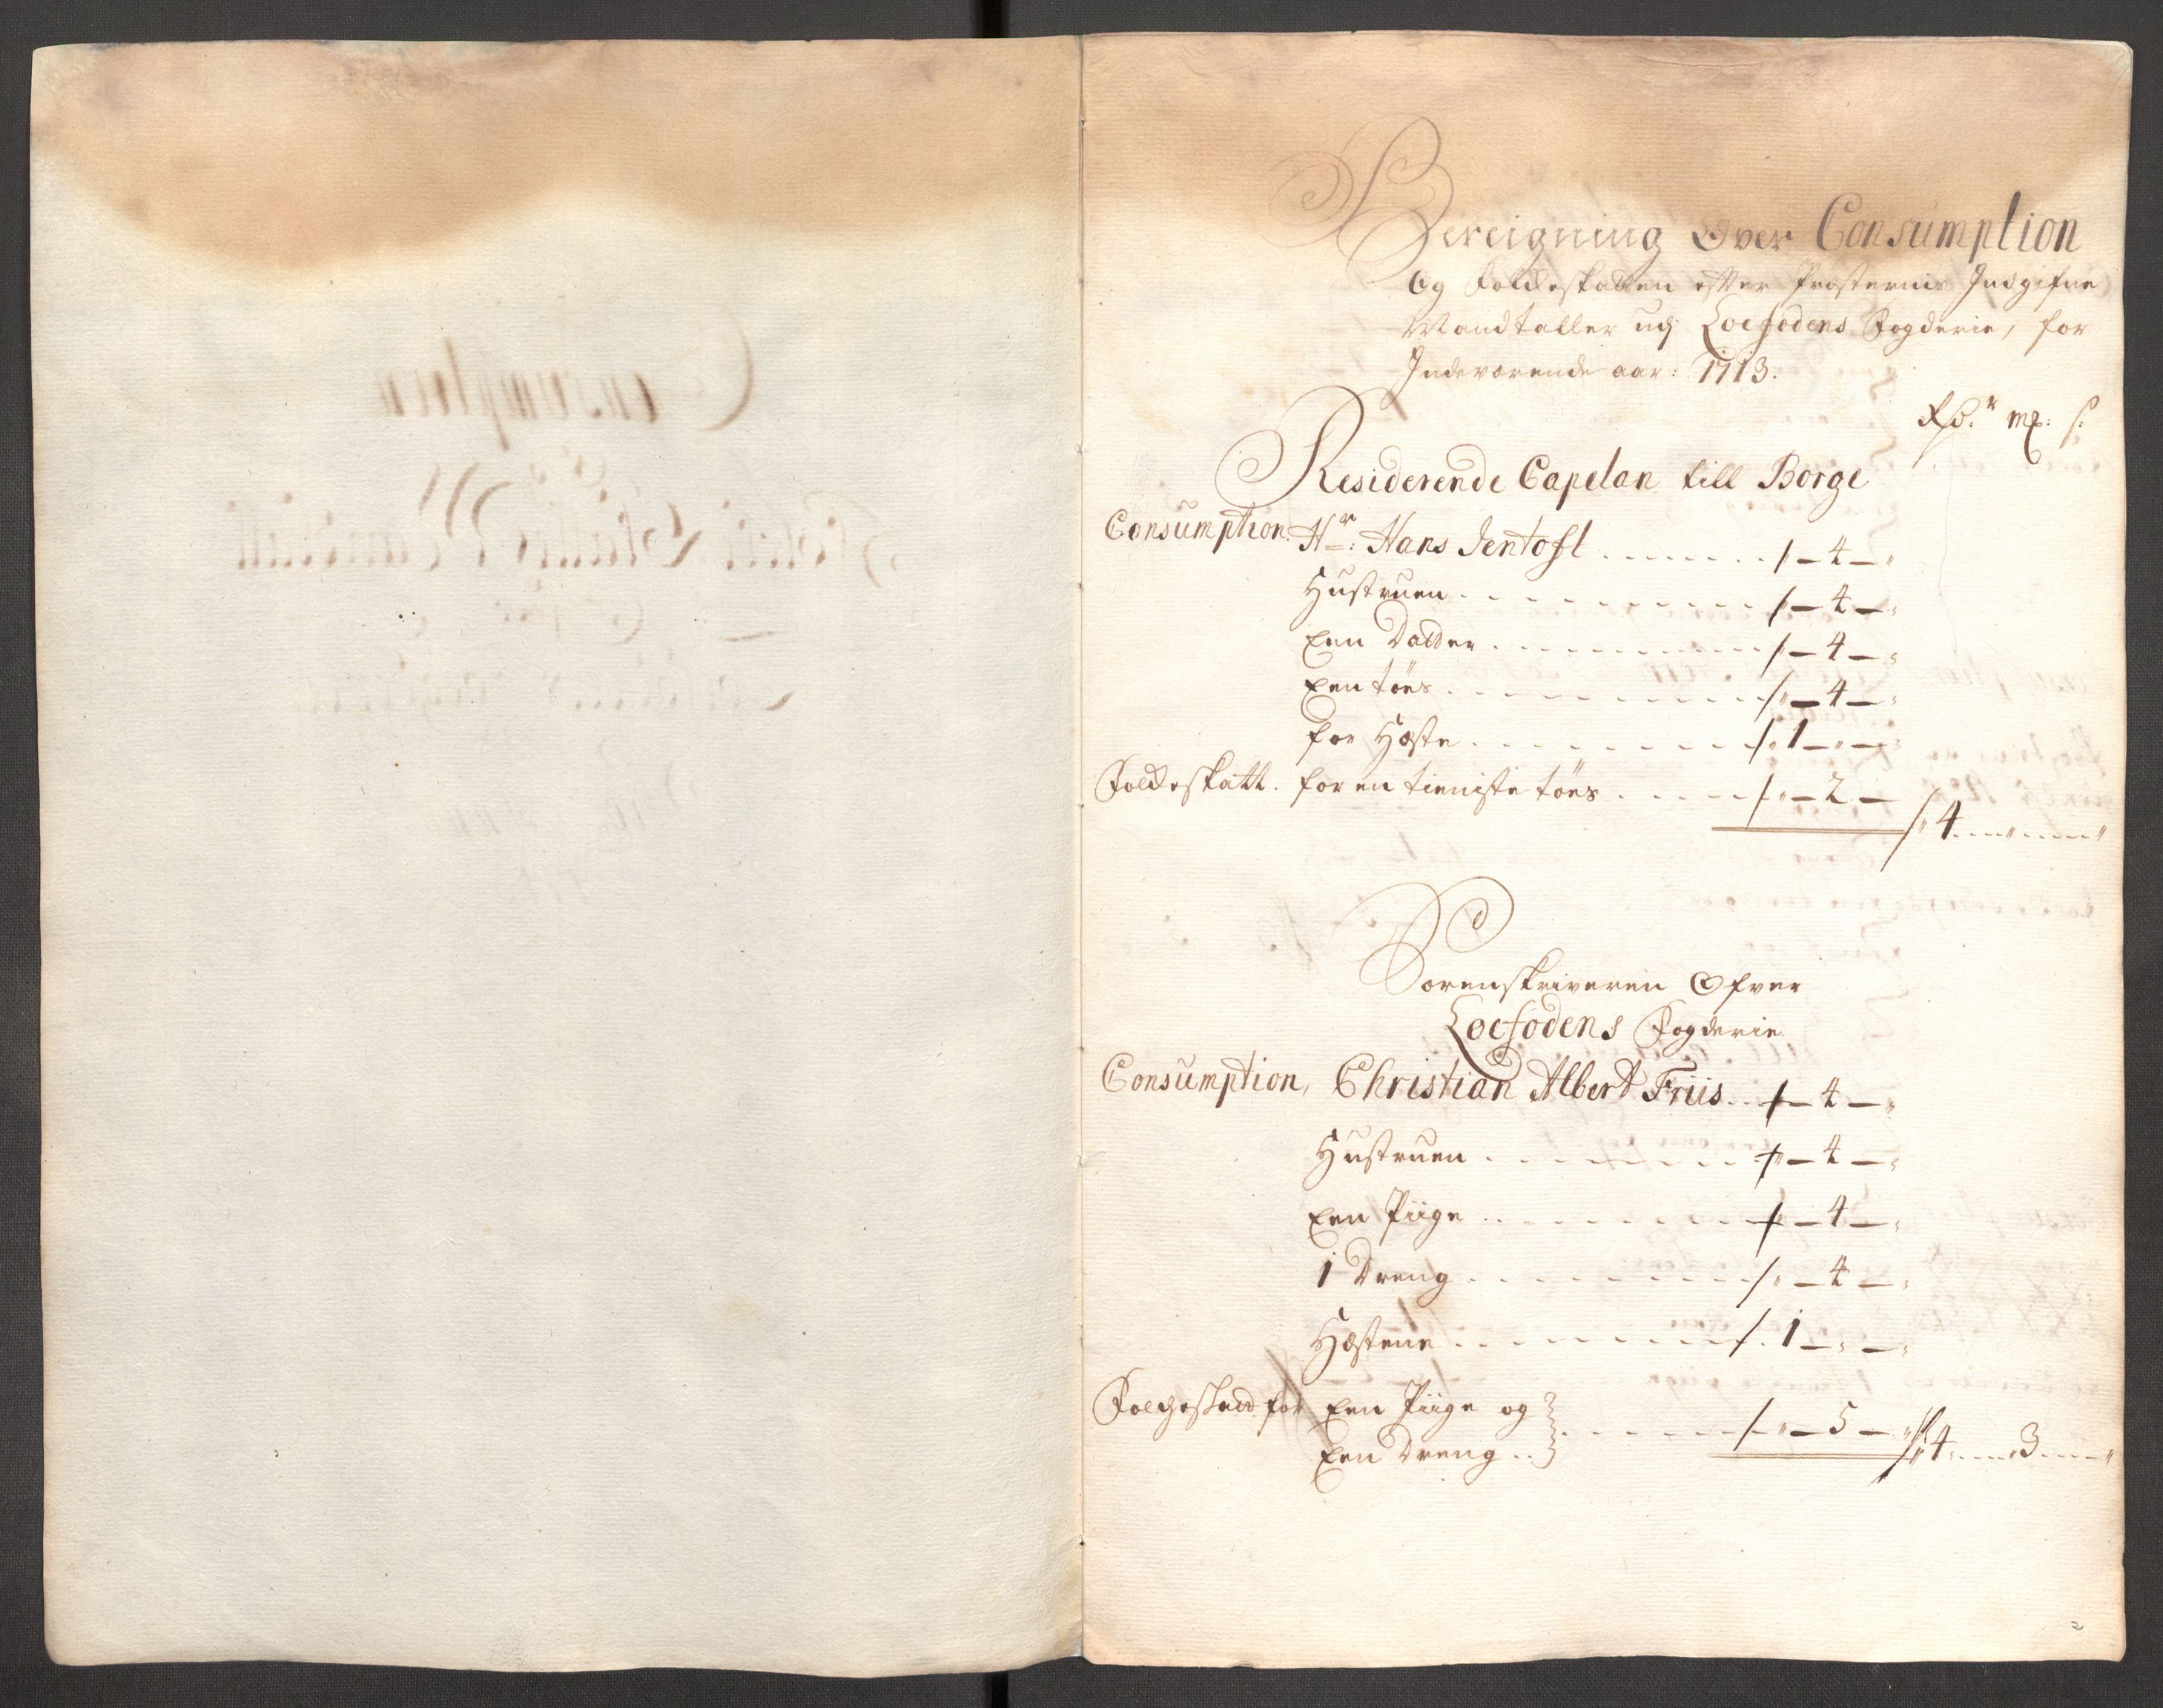 Bereigning Over Consumption
Og Folckeskatten efter Præsternis Indgifne
Mandtaller udj Loefodens Fogderie, for
Indeværende aar: 1713.
Rdr. mk: s:
Residerende Capelan till Borge
Consumption. Hr: Hans Jentoft ........ /-4-"
Hustruen .......... /-4-"
Een Datter .......... /-4-"
Een tøes .......... /"-4-"
for Heste .......... /" 1-"-"
Folckeskatt. for en tieniste tøes ..... /"-2-
/" 4 ...."...."
Sorenskriveren Ofver
Loefodens Fogderie
Consumption, Christian Albert Friis ... /-4-"
Hustruen .......... /"-4-"
Een Piige .......... /"-4-"
1 Dreng .......... /"-4-"
Hestene .......... /. 1-"-"
Folcheskatt for Een Piige og
Een Dreng .. } ....... /"-5-" /" 4 .... 3 ...."